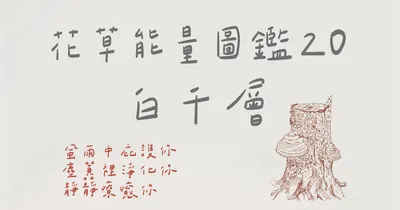 花草能量圖鑑20
白千層
風雨中庇護你
塵箕裡淨化你
靜靜療癒你